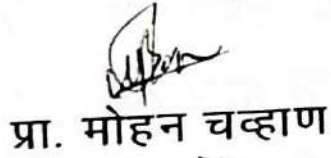 प्रा. मोहन चव्हाण